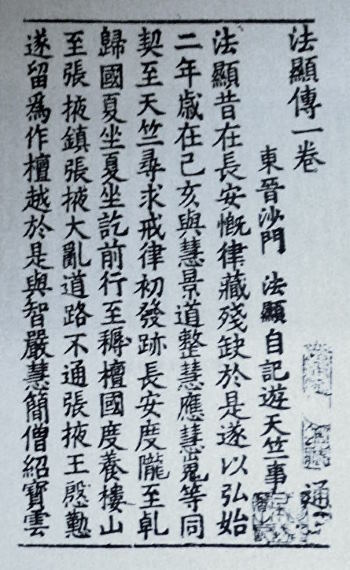 法顯傳一卷 通
東晉沙門 法顯自記遊天竺事
法顯昔在長安慨律藏殘缺於是遂以弘始
二年歲在己亥與慧景道整慧應慧嵬等同
契至天竺尋求戒律初發跡長安度隴至乹
歸國夏坐夏坐訖前行至耨檀國度養樓山
至張掖鎮張掖大亂道路不通張掖王慇懃
遂留爲作檀越於是與智嚴慧簡僧紹寶雲